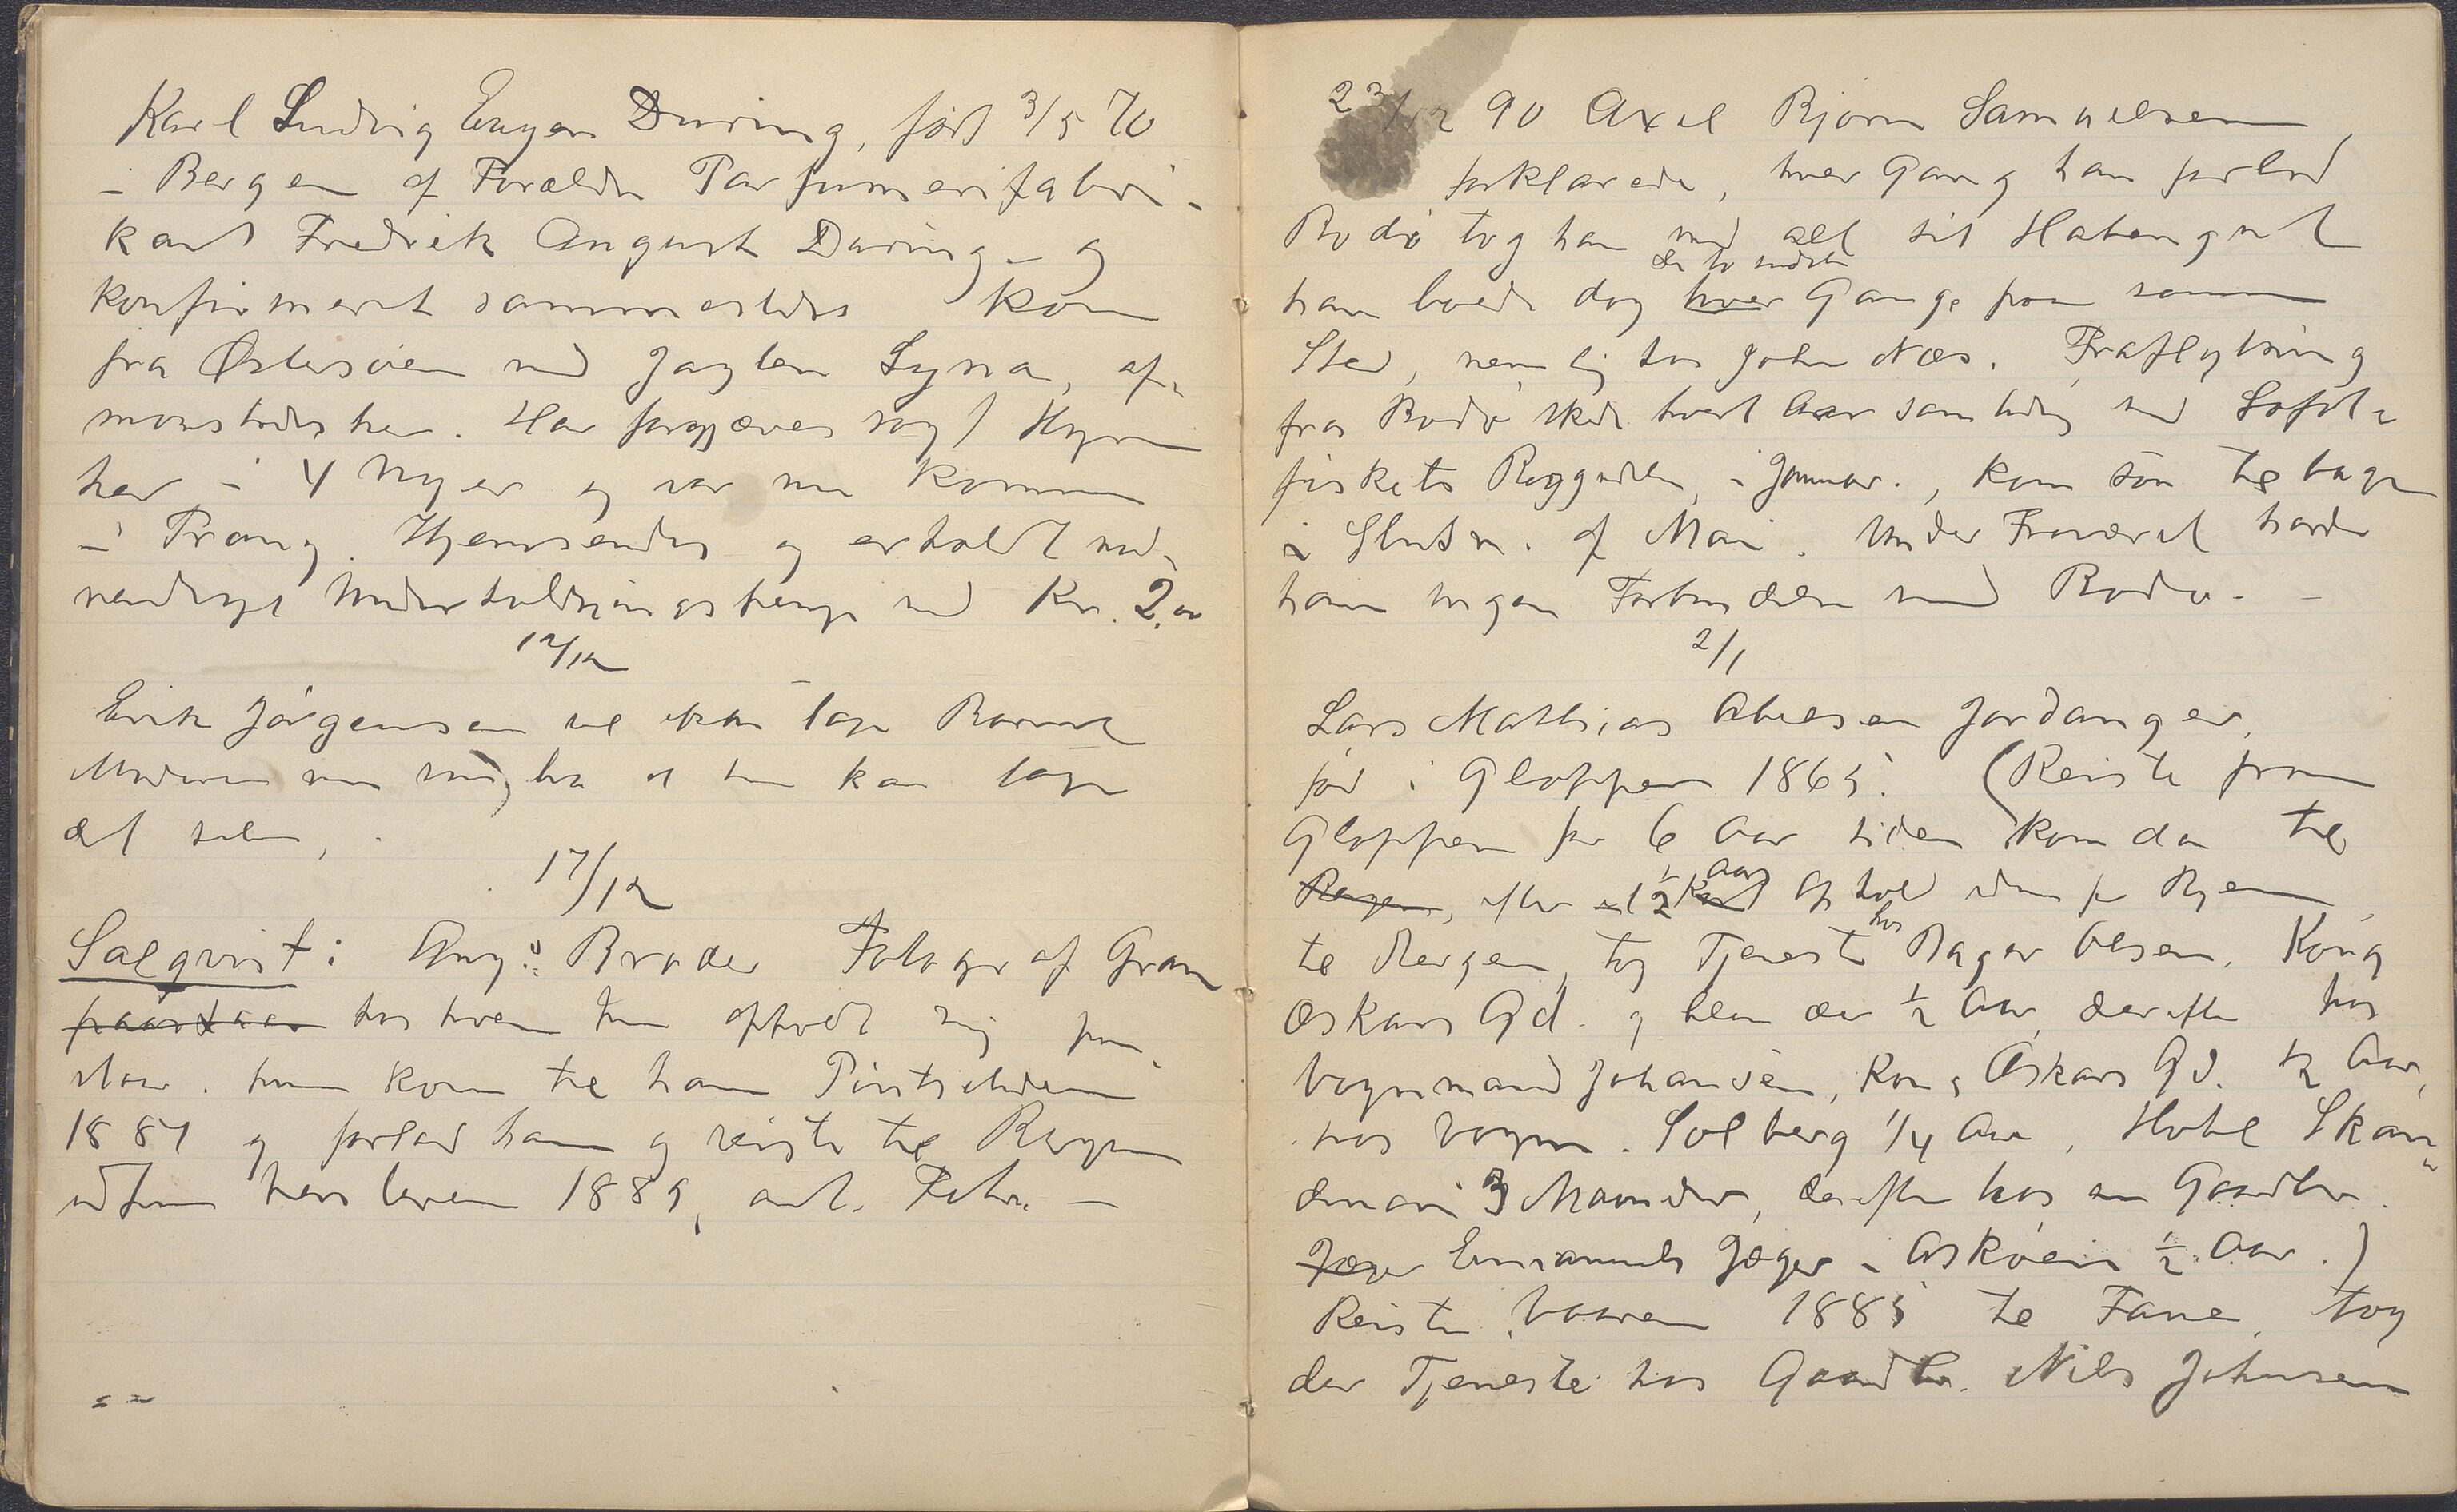 Karl Ludvig Eugen During, født 3/5 70
i Bergen af Forældre Parfumerifabri-
kant Fredrik August During og
konfirmeret sammesteds kom
fra Østersøen med Jagten Syna, af-
mønstredes her. Har forgjæves søgt Hyre
her i 4 Uger og var nu kommen
i Trang. Hjemsendes og erholdt nød-
vendigst Underholdningspenge med Kr. 2.00
12/12
Erik Jørgensen vil ikke tage Barnet
Moderen maa sørge for at hun kan tage
det selv,
17/12
Salqvist: Ang: Broder Fotograf Gran
hos hvem hun opholdt sig
hun kom til ham Pintsetiden
1887 og forlod ham og reiste til Bergen
udpaa 1889, ant. Febr. —
23/12 90 Axel Bjørn Samuelsen,
forklarede, hver Gang han forlod
Bodø tog han med alt sit Habengut
de to sidste
han boede dog hver Gange paa samme
Sted, nemlig hos John Næs. Fraflytning
fra Bodø skede hvert Aar samtidig med Lofot-
fiskets Begyndelse, i Januar., kom saa tilbage
i Slutn. af Mai. Under Fraværet havde
han ingen Forbindelse med Bodø. –
2/1
Lars Mathias Abelsen Jordanger,
fød i Gloppen 1865. (Reiste fra
Gloppen for 6 Aar siden kom da til
Aars
Bergen, efter et 1/2 kort Ophold udenfor Byen
hos
til Bergen, tog Tjeneste Bager Olsen, Kong
Oskars Gd. og blev der 1/2 Aar, derefter hos
Vognmand Johansen, Kong Oskars Gd. 1/2 Aar,
hos Vognm. Solberg 1/4 Aar, Hotel Skan-
dinavi 3 Maaneder, derefter hos en Gaardbr.
Jæger Emanuels Jæger i Askøen 1/2 Aar.)
Reiste Vaaren 1885 til Fane, tog
der Tjeneste hos Gaardbr. Nils Johnsen